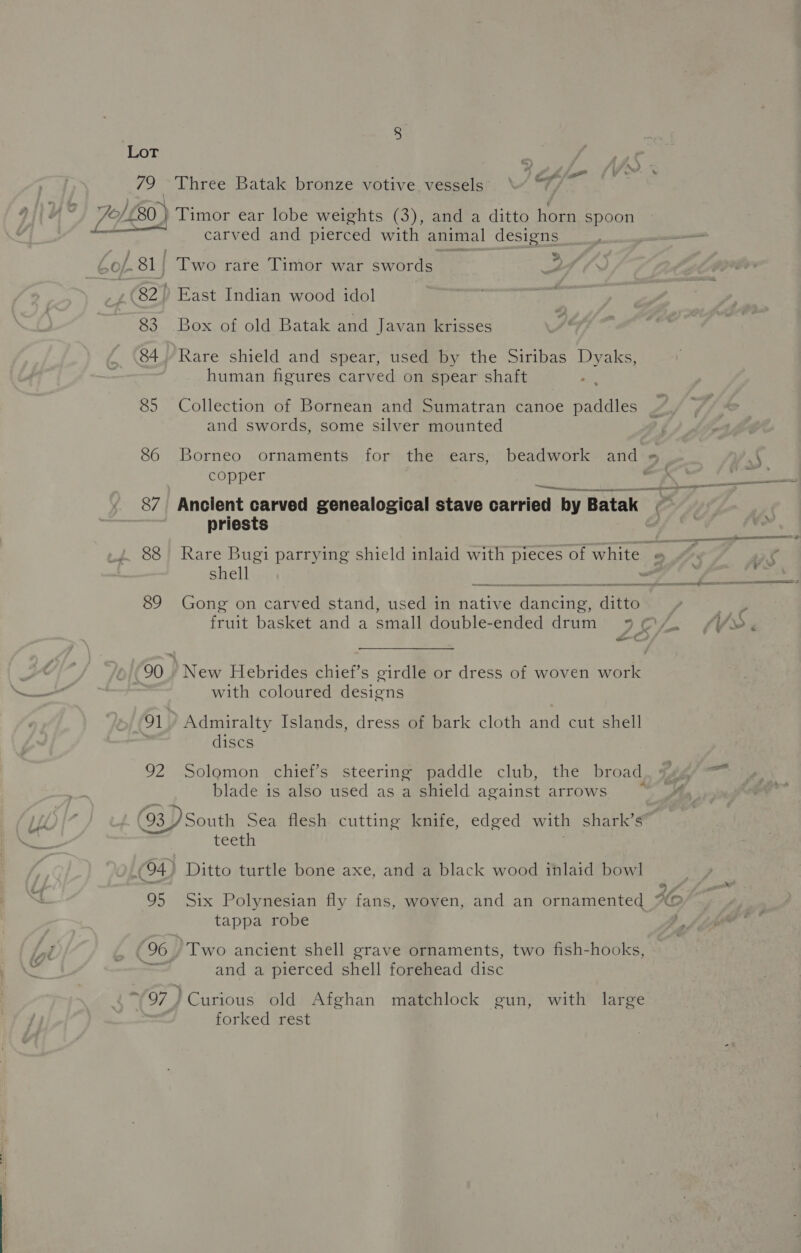 8
LOT
79 Three Batak bronze votive vessels
80 Timor ear lobe weights (3), and a ditto horn spoon
carved and pierced with animal designs
81 Two rare Timor war swords
82 East Indian wood idol
83 Box of old Batak and Javan krisses
84 Rare shield and spear, used by the Siribas Dyaks,
human figures carved on spear shaft
85 Collection of Bornean and Sumatran canoe paddles
and swords, some silver mounted
86 Borneo ornaments for the ears, beadwork and
copper
87 Ancient carved genealogical stave carried by Batak
priests
88 Rare Bugi parrying shield inlaid with pieces of white
shell
89 Gong on carved stand, used in native dancing, ditto
fruit basket and a small double-ended drum
90 New Hebrides chief's girdle or dress of woven work
with coloured designs
91 Admiralty Islands, dress of bark cloth and cut shell
discs
92 Solomon chief's steering paddle club, the broad
blade is also used as a shield against arrows
93 South Sea flesh cutting knife, edged with shark's
teeth
94 Ditto turtle bone axe, and a black wood inlaid bowl
95 Six Polynesian fly fans, woven, and an ornamented
tappa robe
96 Two ancient shell grave ornaments, two fish-hooks,
and a pierced shell forehead disc
97 Curious old Afghan matchlock gun, with large
forked rest